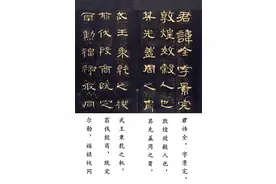 君諱全字景完
敦煌效穀人也
其先蓋周之胄
武王秉乾之機
翦伐殷商既定
爾勳福祿攸同
君讳全，字景完，
敦煌效穀人也，
其先盖周之胄，
武王秉乾之机，
翦伐殷商，既定
尔勋，福禄攸同